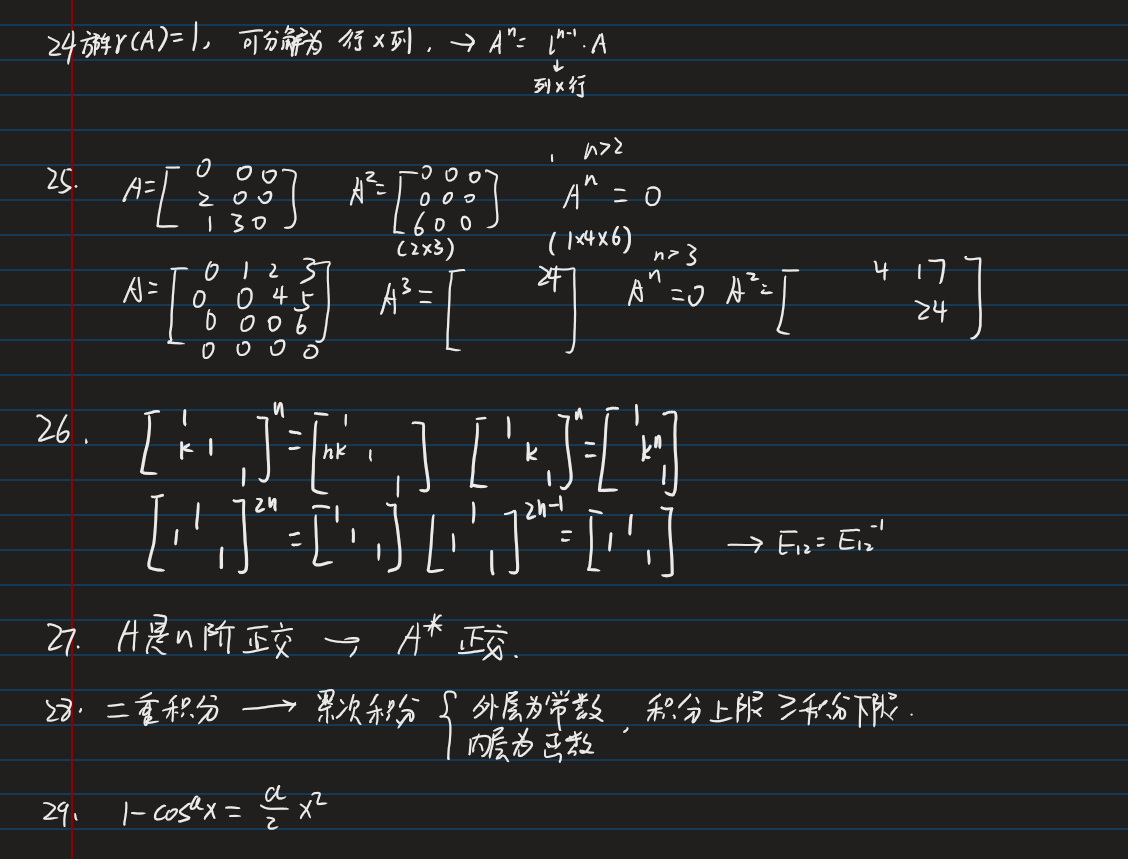 24 方阵r(A)=1, 可分解为 行×列, → Aⁿ= lⁿ⁻¹·A
↓
列×行
25. A=[0 0 0; 2 0 0; 1 3 0] A²=[0 0 0; 0 0 0; 6 0 0] (2×3) n>2 Aⁿ=0
A=[0 1 2 3; 0 0 4 5; 0 0 0 6; 0 0 0 0] A³=[24] (1×4×6) n>3 Aⁿ=0 A²=[4 17; 24]
26. [1; k 1; 1]ⁿ=[1; nk 1; 1] [1; k; 1]ⁿ=[1; kⁿ; 1]
[1; 1; 1]²ⁿ=[1; 1; 1] [1; 1; 1]²ⁿ⁻¹=[1; 1; 1] → E₁₂=E₁₂⁻¹
27. A是n阶正交 → A* 正交.
28. 二重积分 → 累次积分 { 外层为常数, 积分上限 ≥ 积分下限.
内层为函数
29. 1-cosᵃx = a/2 x²